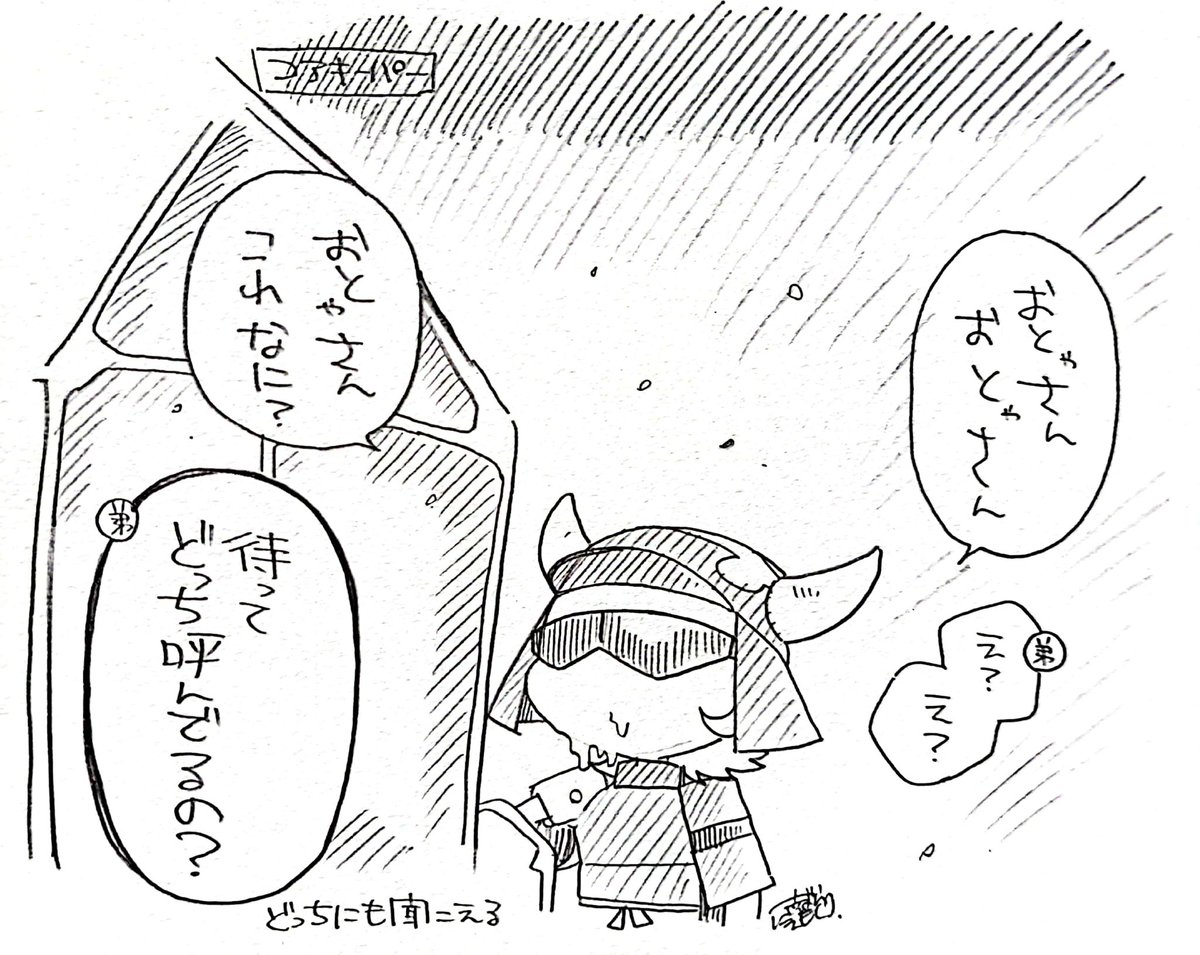 コアキーパー
おとゃさん
おとゃさん
弟
え?
え?
おとゃさん
これなに?
弟
待って
どっち呼んでるの?
どっちにも聞こえる